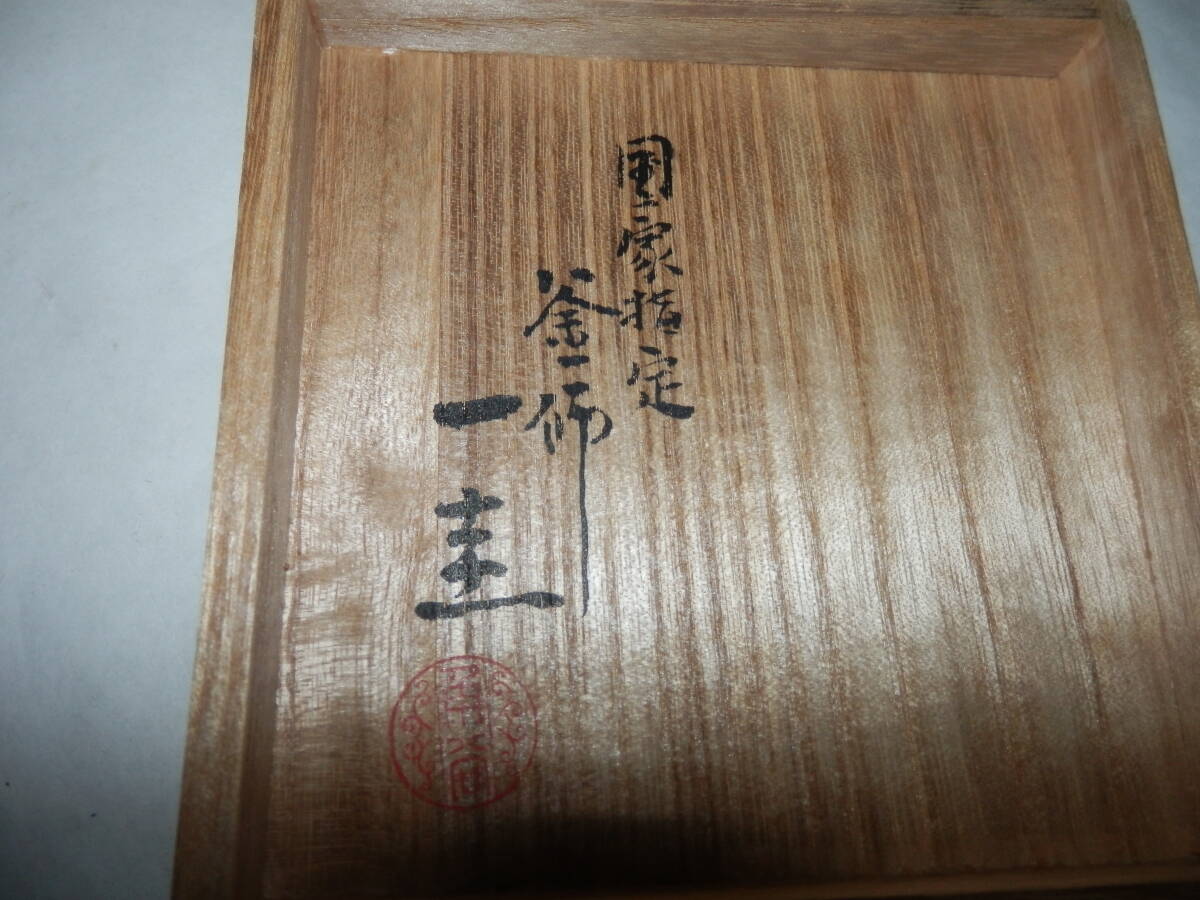 国家指定
釜師
一圭